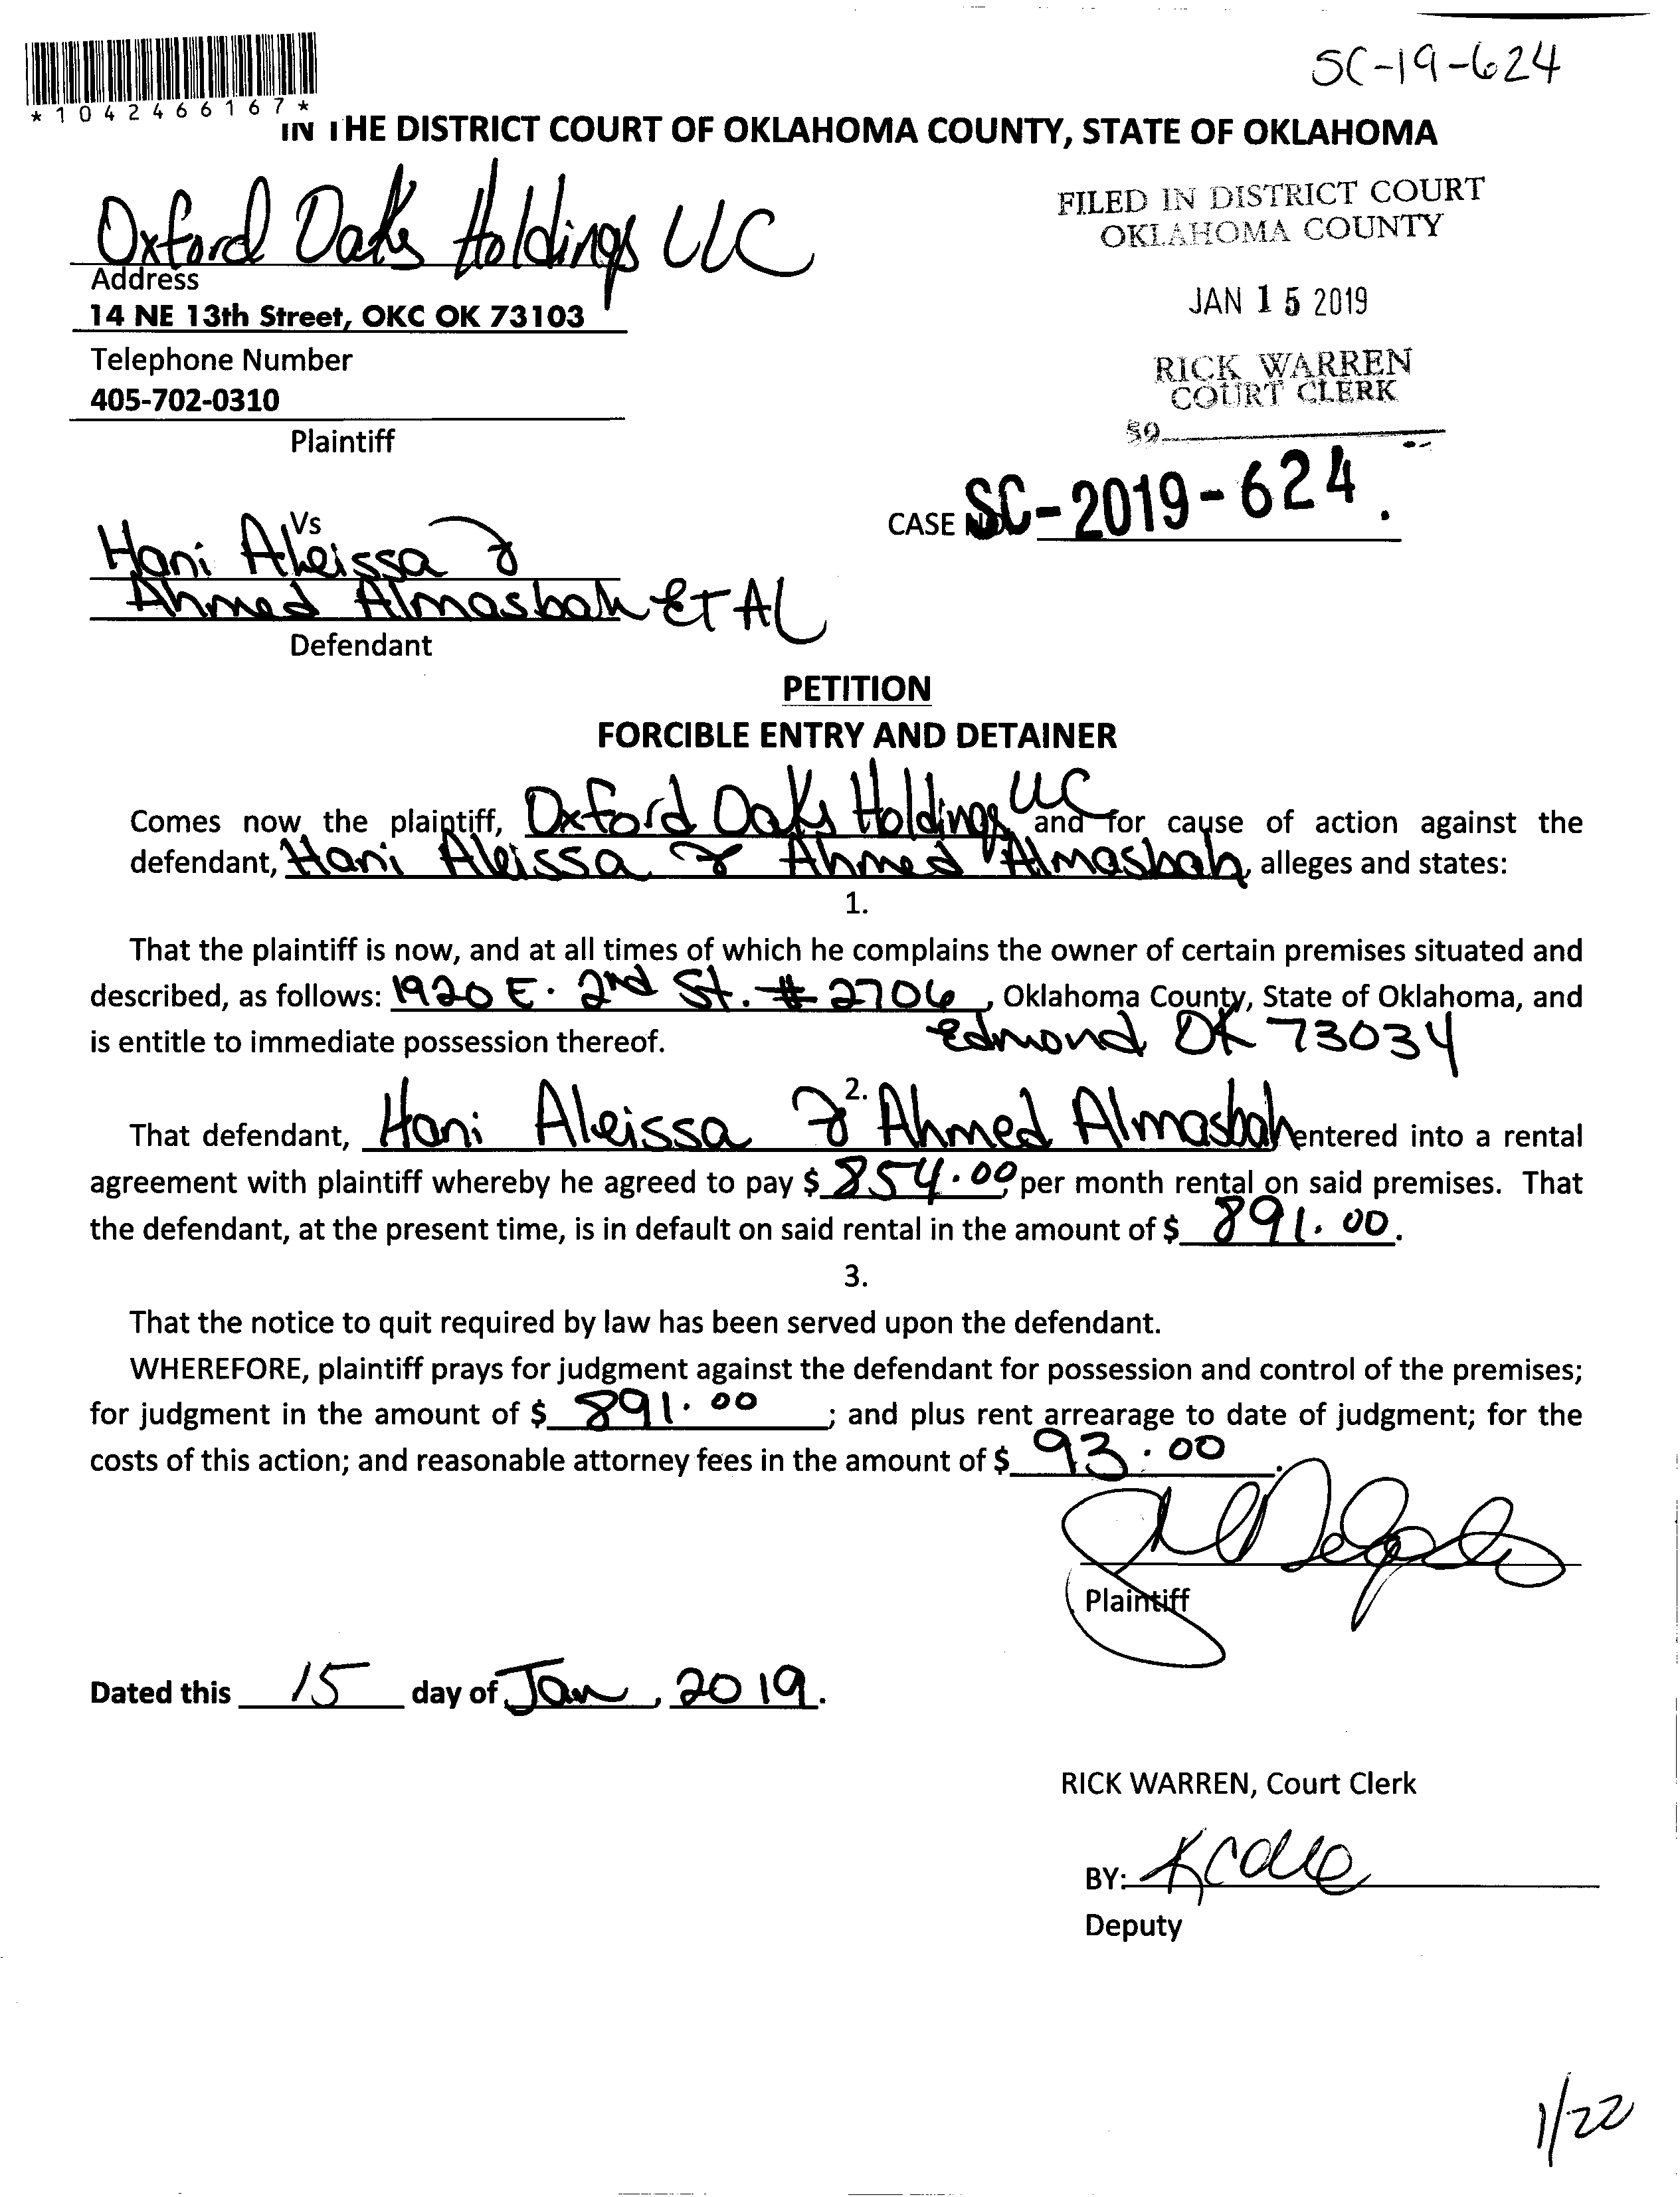 SC-19-624
*1042466167*
IN THE DISTRICT COURT OF OKLAHOMA COUNTY, STATE OF OKLAHOMA
Oxford Oaks Holdings LLC
Address
14 NE 13th Street, OKC OK 73103
Telephone Number
405-702-0310
Plaintiff
FILED IN DISTRICT COURT
OKLAHOMA COUNTY
JAN 15 2019
RICK WARREN
COURT CLERK
39
CASE NO. SC-2019-624.
Vs
Hani Aleissa &
Ahmed Almasbah ET AL
Defendant
PETITION
FORCIBLE ENTRY AND DETAINER
Comes now the plaintiff, Oxford Oaks Holdings LLC and for cause of action against the
defendant, Hani Aleissa & Ahmed Almasbah, alleges and states:
1.
That the plaintiff is now, and at all times of which he complains the owner of certain premises situated and
described, as follows: 1920 E. 2nd St. # 2706, Oklahoma County, State of Oklahoma, and
is entitle to immediate possession thereof. Edmond OK 73034
2.
That defendant, Hani Aleissa & Ahmed Almasbah entered into a rental
agreement with plaintiff whereby he agreed to pay $ 854.00, per month rental on said premises. That
the defendant, at the present time, is in default on said rental in the amount of $ 891.00.
3.
That the notice to quit required by law has been served upon the defendant.
WHEREFORE, plaintiff prays for judgment against the defendant for possession and control of the premises;
for judgment in the amount of $ 891.00; and plus rent arrearage to date of judgment; for the
costs of this action; and reasonable attorney fees in the amount of $ 93.00.
Plaintiff
Dated this 15 day of Jan, 2019.
RICK WARREN, Court Clerk
BY:
Deputy
1/22